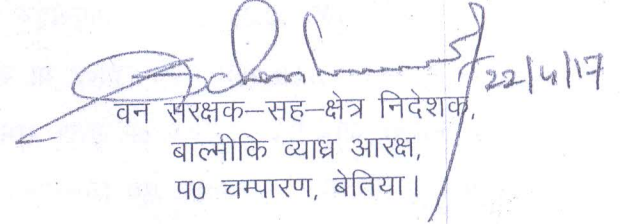 22/4/17
वन संरक्षक–सह–क्षेत्र निदेशक,
बाल्मीकि व्याघ्र आरक्ष,
प0 चम्पारण, बेतिया।